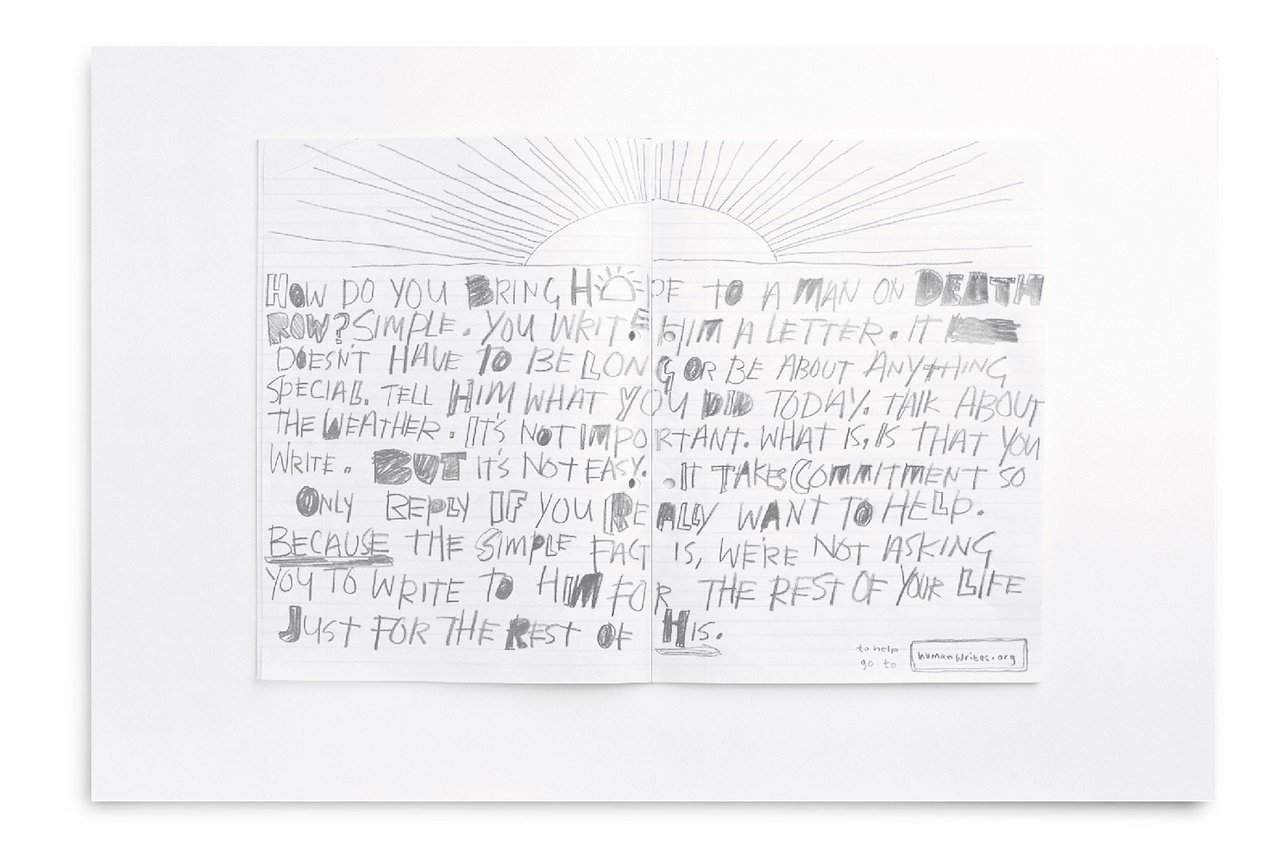 HOW DO YOU BRING HOPE TO A MAN ON DEATH
ROW? SIMPLE. YOU WRITE HIM A LETTER. IT
DOESN'T HAVE TO BE LONG OR BE ABOUT ANYTHING
SPECIAL. TELL HIM WHAT YOU DID TODAY. TALK ABOUT
THE WEATHER. IT'S NOT IMPORTANT. WHAT IS, IS THAT YOU
WRITE. BUT IT'S NOT EASY. IT TAKES COMMITMENT SO
ONLY REPLY IF YOU REALLY WANT TO HELP.
BECAUSE THE SIMPLE FACT IS, WE'RE NOT ASKING
YOU TO WRITE TO HIM FOR THE REST OF YOUR LIFE
JUST FOR THE REST OF HIS.
to help
go to humanwrites.org